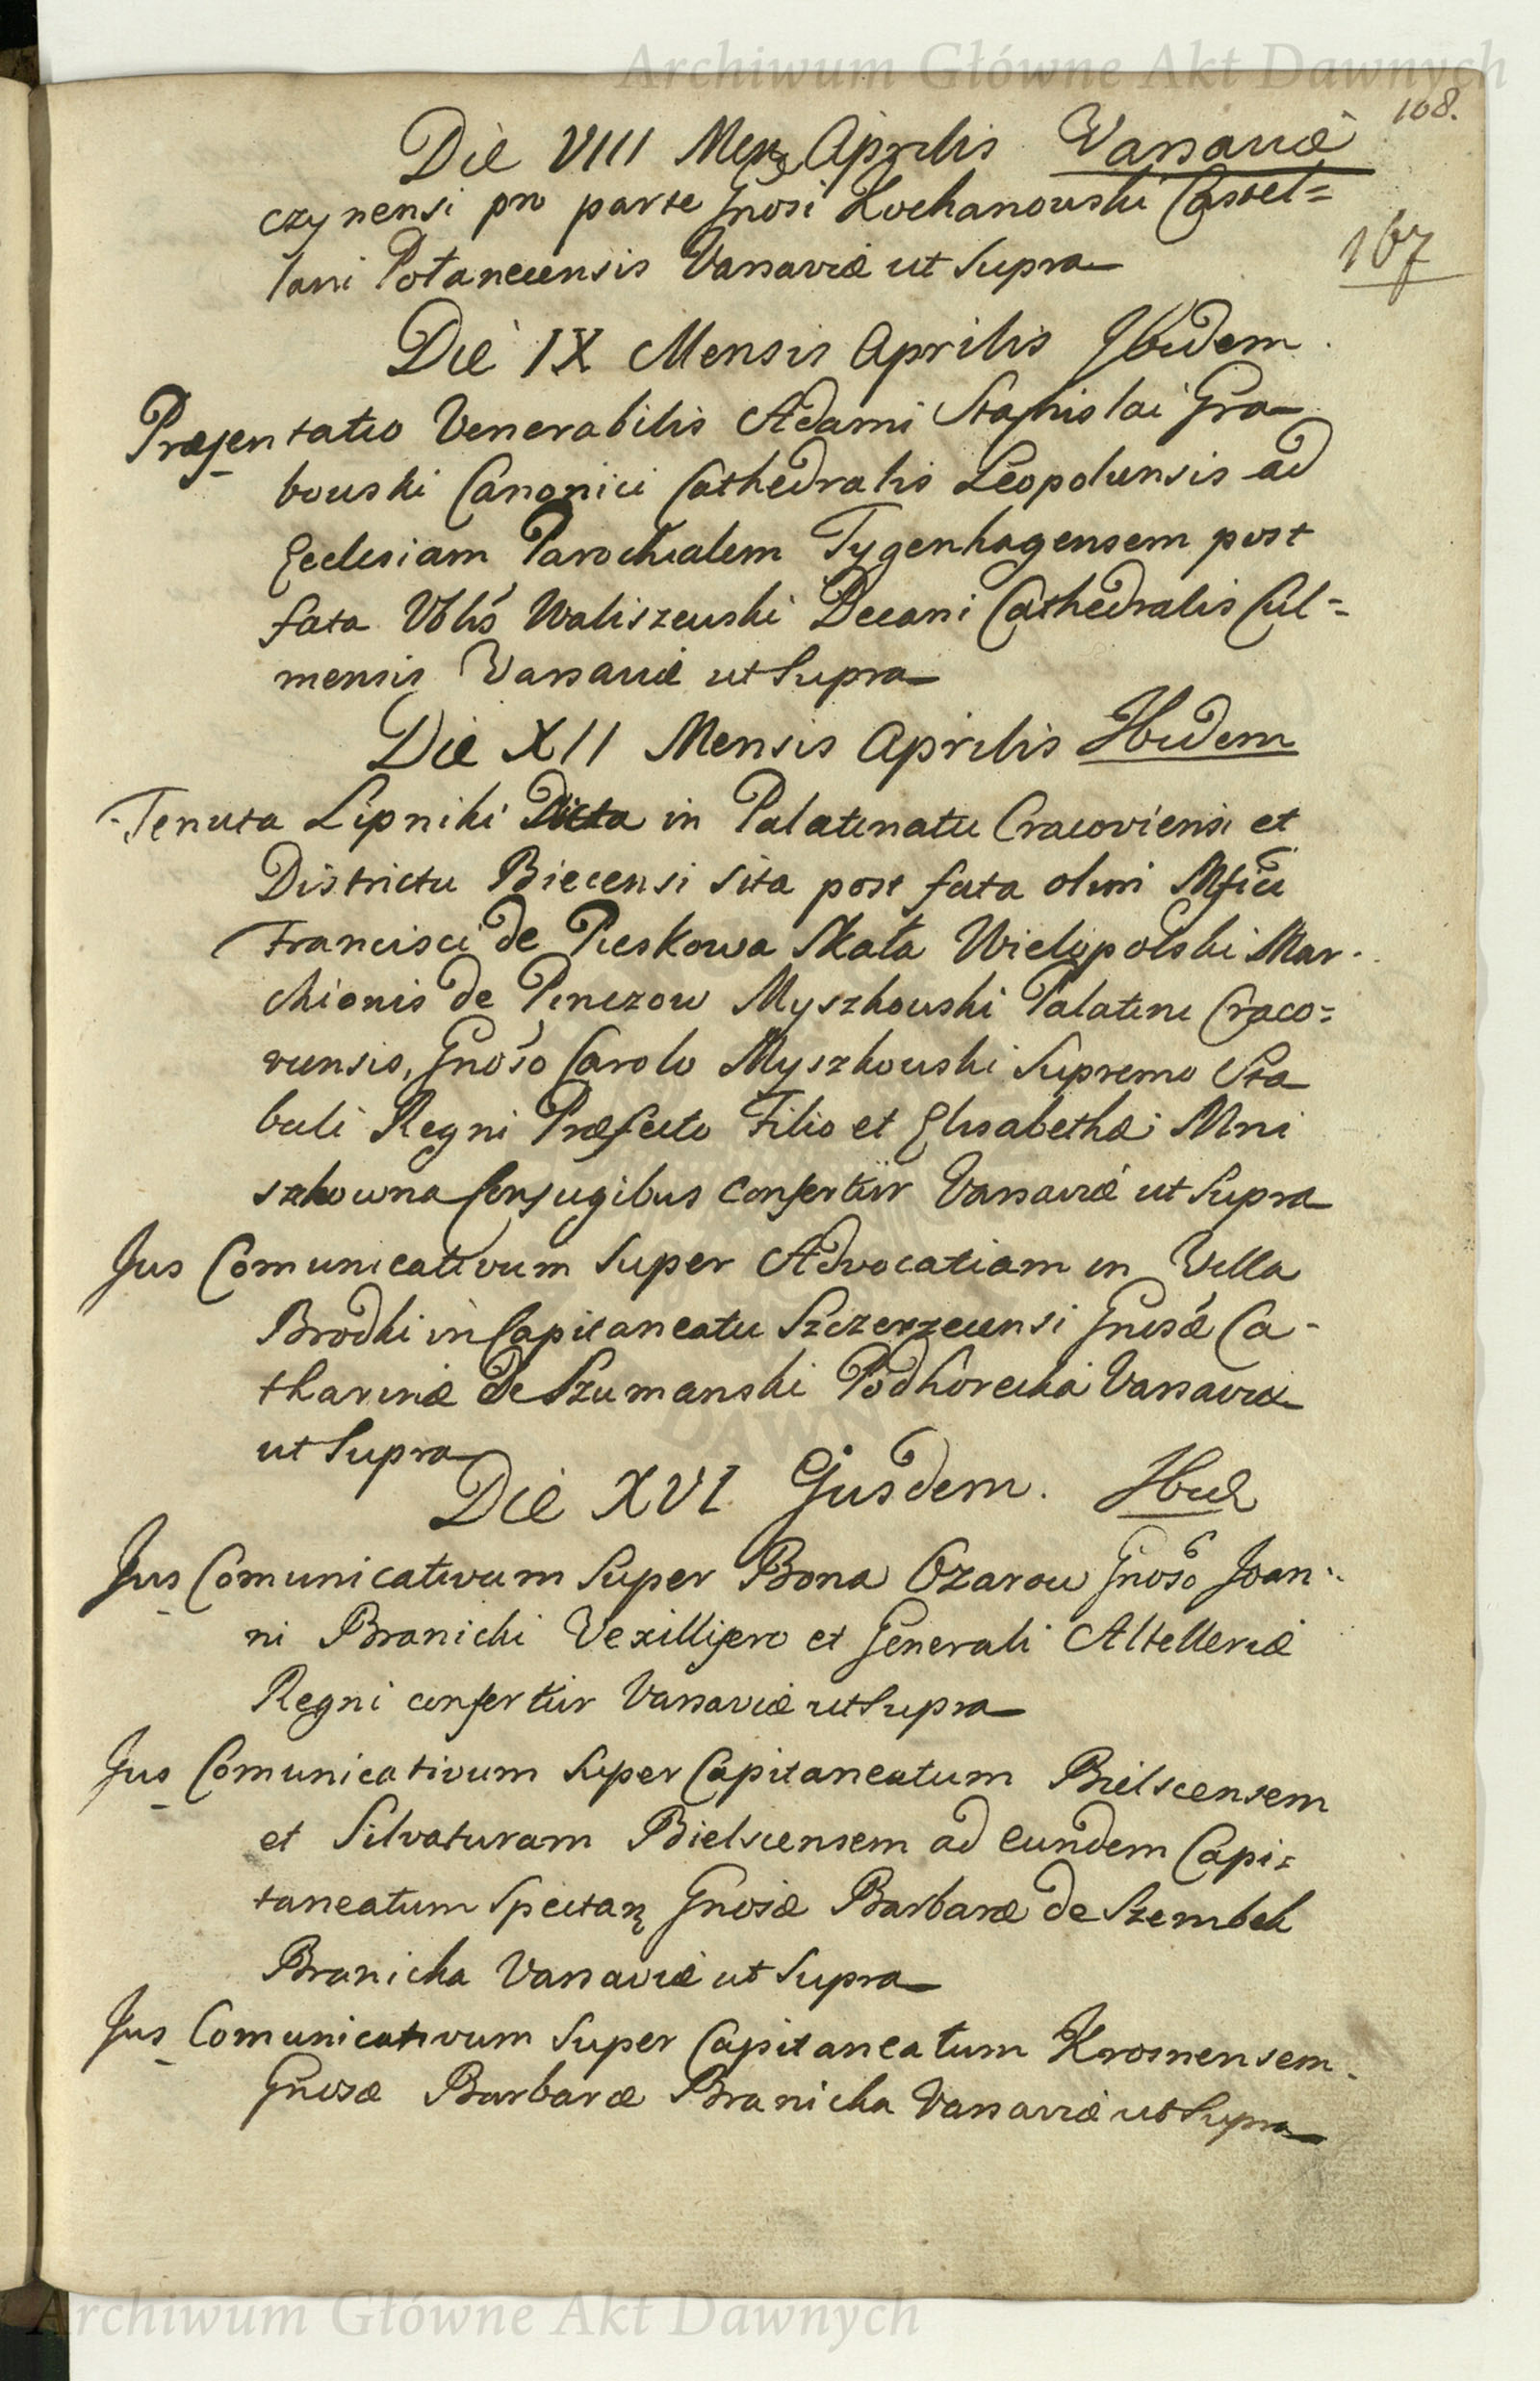 Archiwum Główne Akt Dawnych
108.
Die VIII Mens Aprilis Varsaviæ
167
czynensi pro parte Gnosi Kochanowski Castel=
lani Połanecensis Varsaviæ ut Supra
Die IX Mensis Aprilis Ibidem
Præsentatio Venerabilis Adami Stanislai Gra
bowski Canonici Cathedralis Leopoliensis ad
Ecclesiam Parochialem Tygenhagensem post
fata Vblis Waliszewski Decani Cathedralis Cul=
mensis Varsaviæ ut Supra
Die XII Mensis Aprilis Ibidem
Tenuta Lipniki Dicta in Palatinatu Cracoviensi et
Districtu Biecensi Sita post fata olim Mfici
Francisci de Pieskowa Skała Wielopolski Mar-
chionis de Pinczow Myszkowski Palatini Craco=
viensis, Gnoso Carolo Myszkowski Supremo Sta
buli Regni Præfecto Filio et Elisabethæ Mni
szkowna Conjugibus Confertur Varsaviæ ut Supra
Jus Comunicativum Super Advocatiam in Villa
Brodki in Capitaneatu Szczerzecensi Gnosæ Ca-
tharinæ De Szumanski Podhorecka Varsaviæ
ut Supra
Die XVI Ejusdem. Ibid
Jus Comunicativum Super Bona Ozarow Gnoso Joan-
ni Branicki Vexillifero et Generali Altelleriæ
Regni confertur Varsaviæ ut Supra
Jus Comunicativum Super Capitaneatum Bielscensem
et Silvaturam Bielscensem ad eundem Capi=
taneatum Spectan Gnosæ Barbaræ de Szembek
Branicka Varsaviæ ut Supra
Jus Comunicativum Super Capitaneatum Krosnensem
Gnosæ Barbaræ Branicka Varsaviæ ut Supra
Archiwum Główne Akt Dawnych